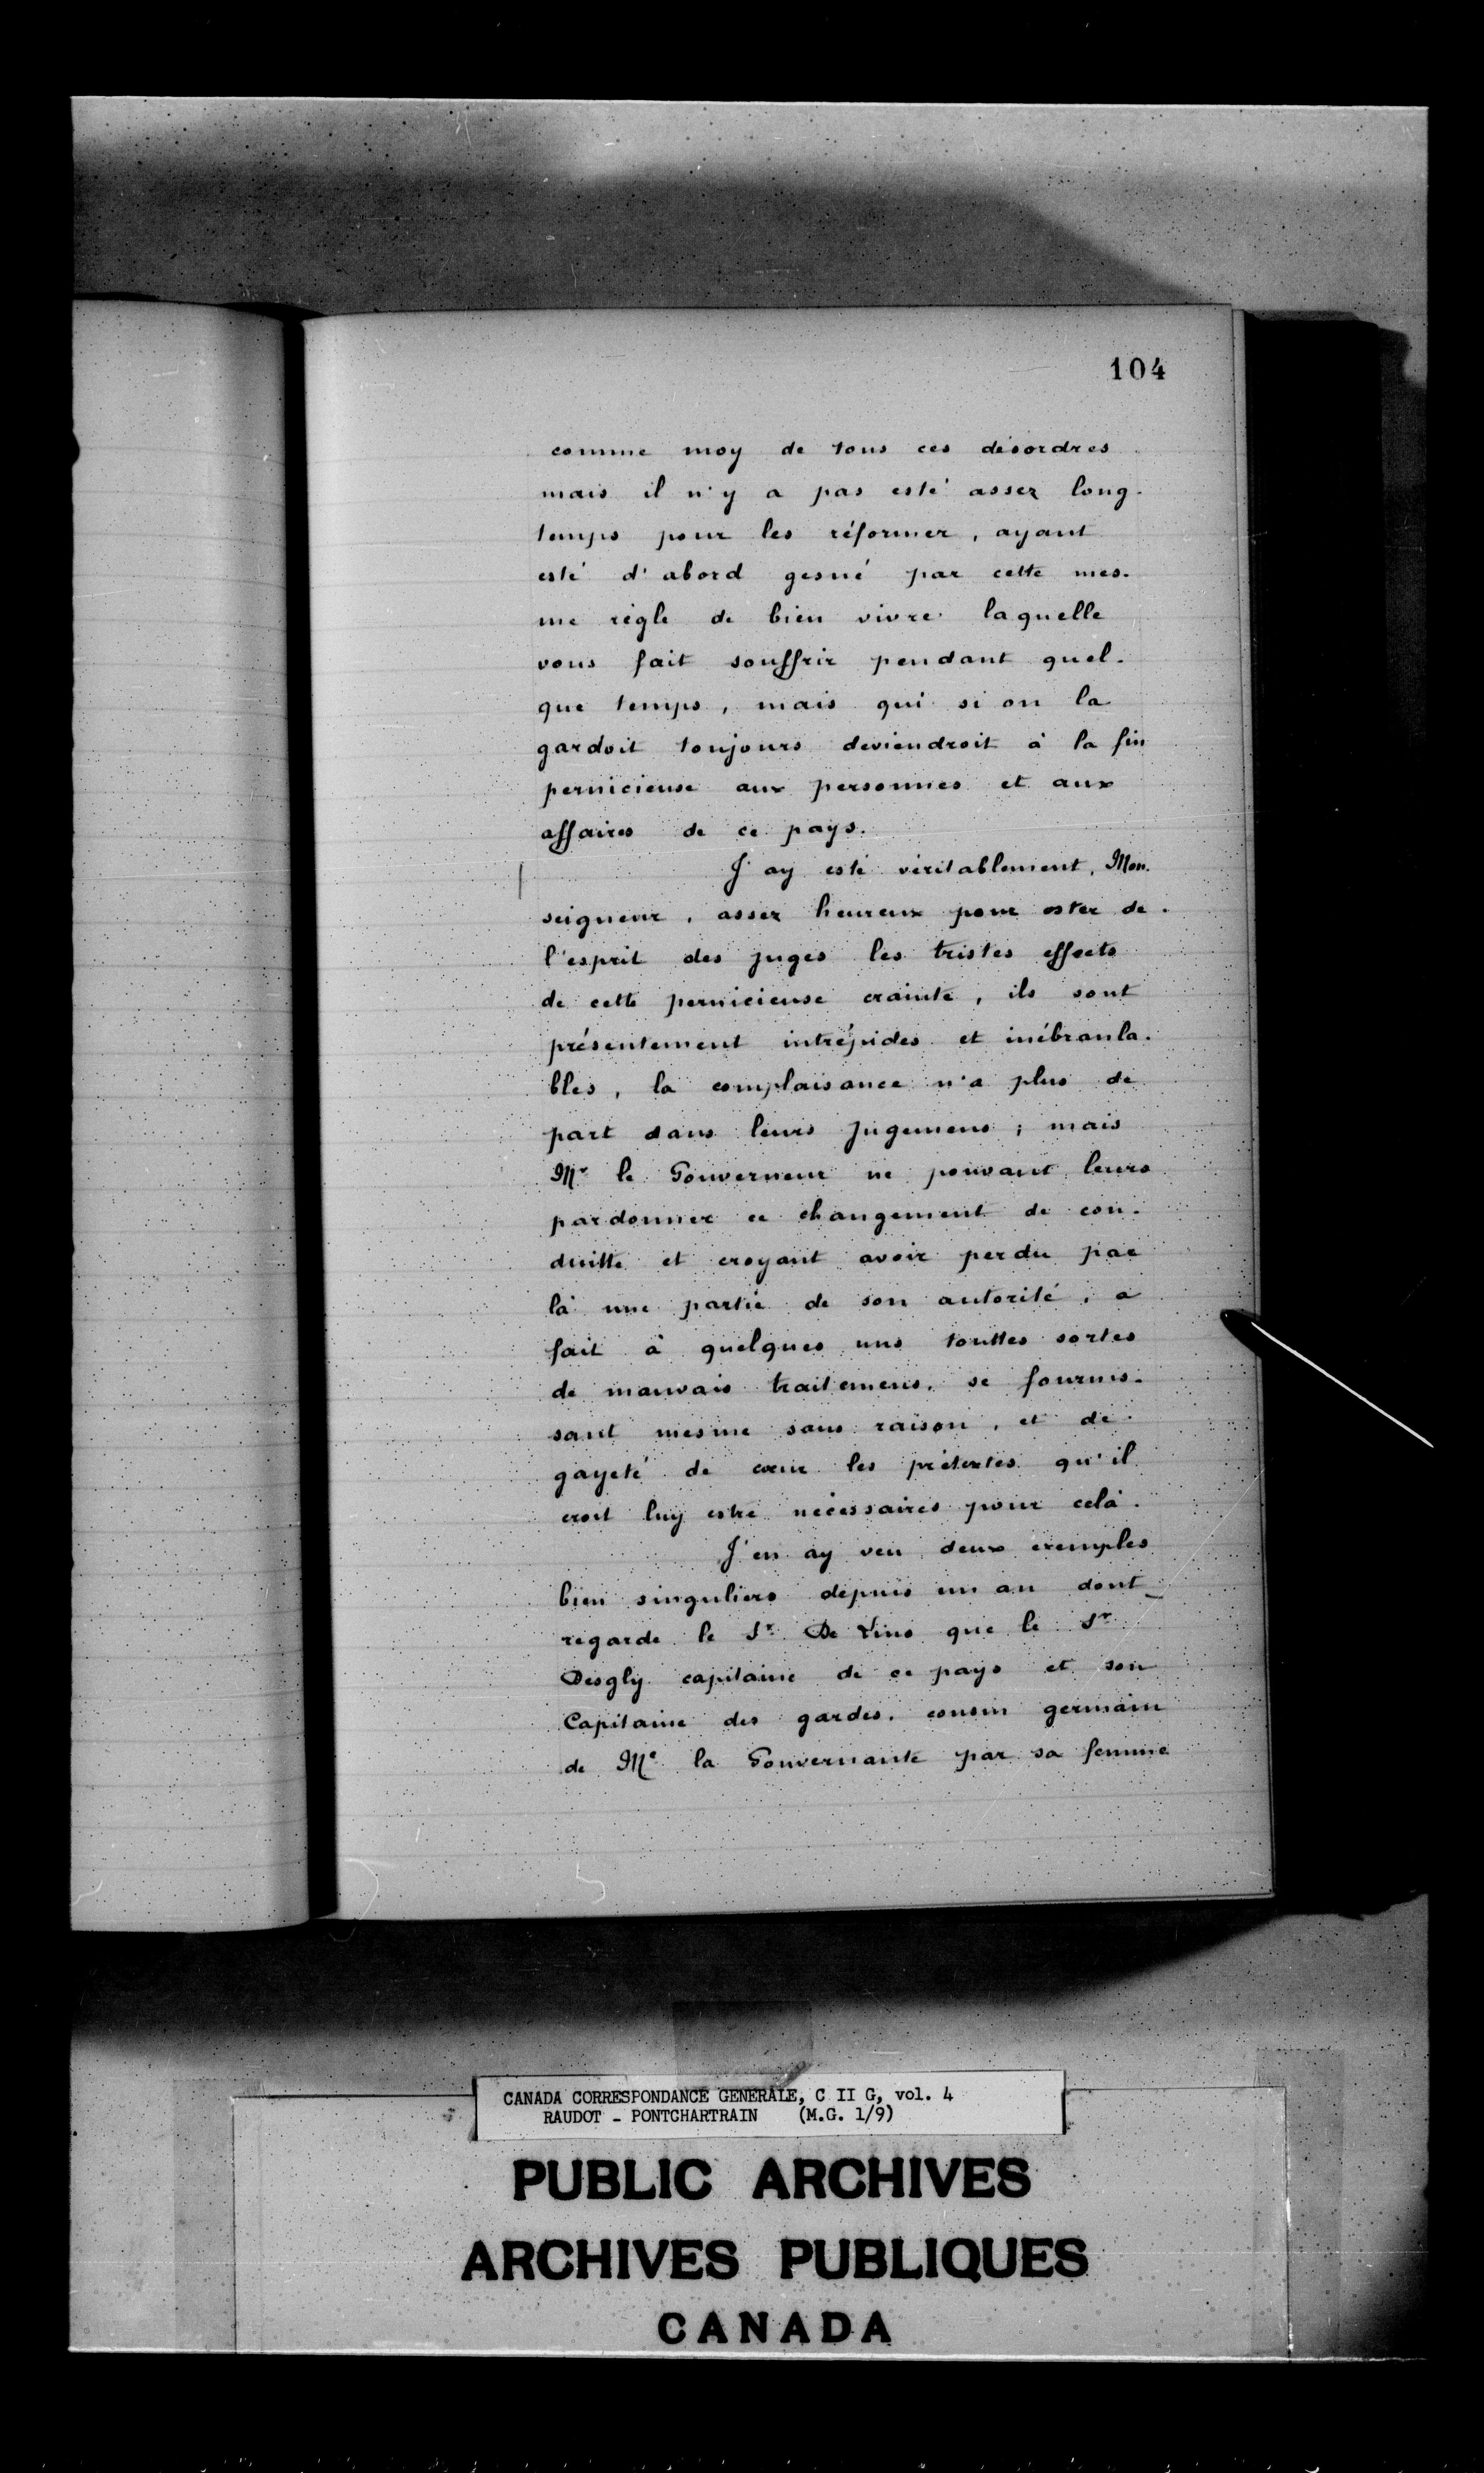 104
comme moy de tous ces désordres
mais il n'y a pas esté assez long-
temps pour les réformer, ayant
esté d'abord gesné par cette mes-
me règle de bien vivre laquelle
vous fait souffrir pendant quel-
que temps, mais qui si on la
gardoit toujours deviendroit à la fin
pernicieuse aux personnes et aux
affaires de ce pays.
J'ay esté véritablement, Mon-
seigneur, assez heureux pour oster de
l'esprit des juges les tristes effects
de cette pernicieuse crainte, ils sont
présentement intrépides et inébranla-
bles, la complaisance n'a plus de
part dans leurs jugemens; mais
Mr le Gouverneur ne pouvant leurs
pardonner ce changement de con-
duitte et croyant avoir perdu par
là une partie de son autorité, a
fait à quelques uns touttes sortes
de mauvais traitemens, se fournis-
sant mesme sans raison, et de
gayeté de cœur les prétextes qu'il
croit luy estre nécessaires pour celà.
J'en ay veu deux exemples
bien singuliers depuis un an dont
regarde le Sr De Lino que le Sr
Desgly capitaine de ce pays et son
Capitaine des gardes, cousin germain
de Me la Gouvernante par sa femme
CANADA CORRESPONDANCE GENERALE, C II G, vol. 4
RAUDOT - PONTCHARTRAIN (M.G. 1/9)
PUBLIC ARCHIVES
ARCHIVES PUBLIQUES
CANADA